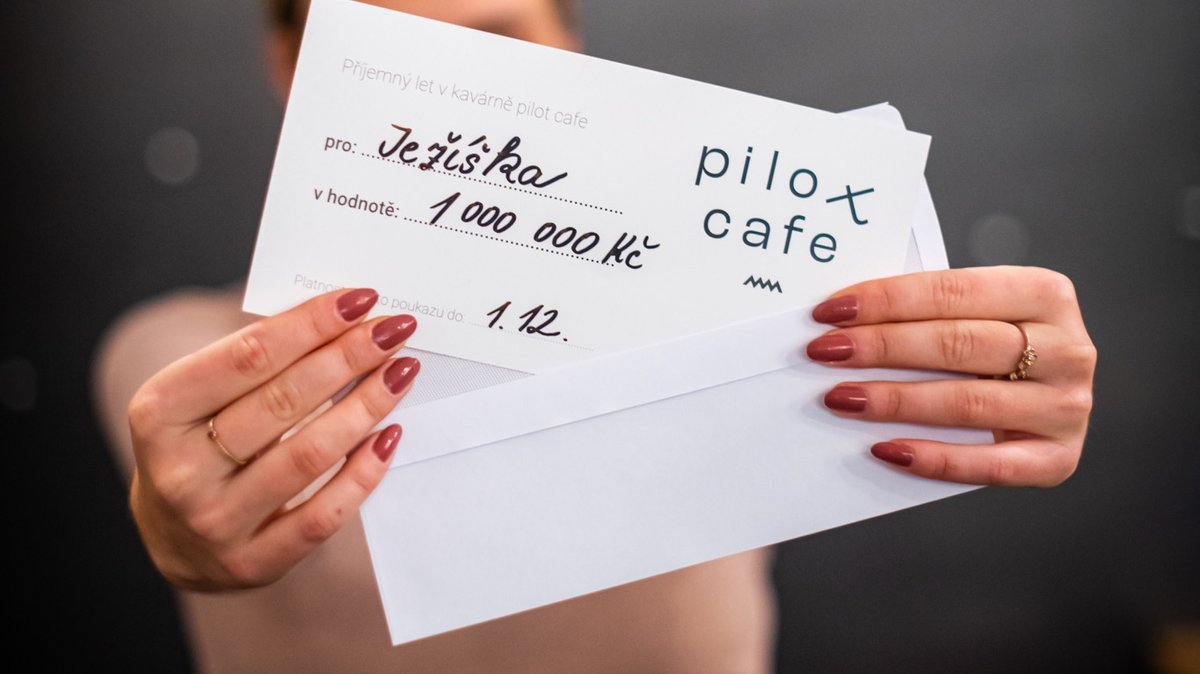 Příjemný let v kavárně pilot cafe
pro: Ježíška
v hodnotě: 1 000 000 Kč
Platnost to poukazu do: 1. 12.
pilot
cafe